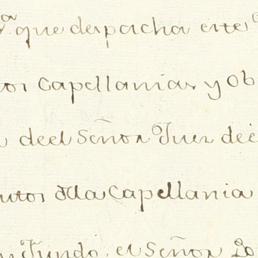 que despacha este
tos Capellanias y Ob
de el Señor Juez de
utos de la Capellania
Fundó, el Señor Do